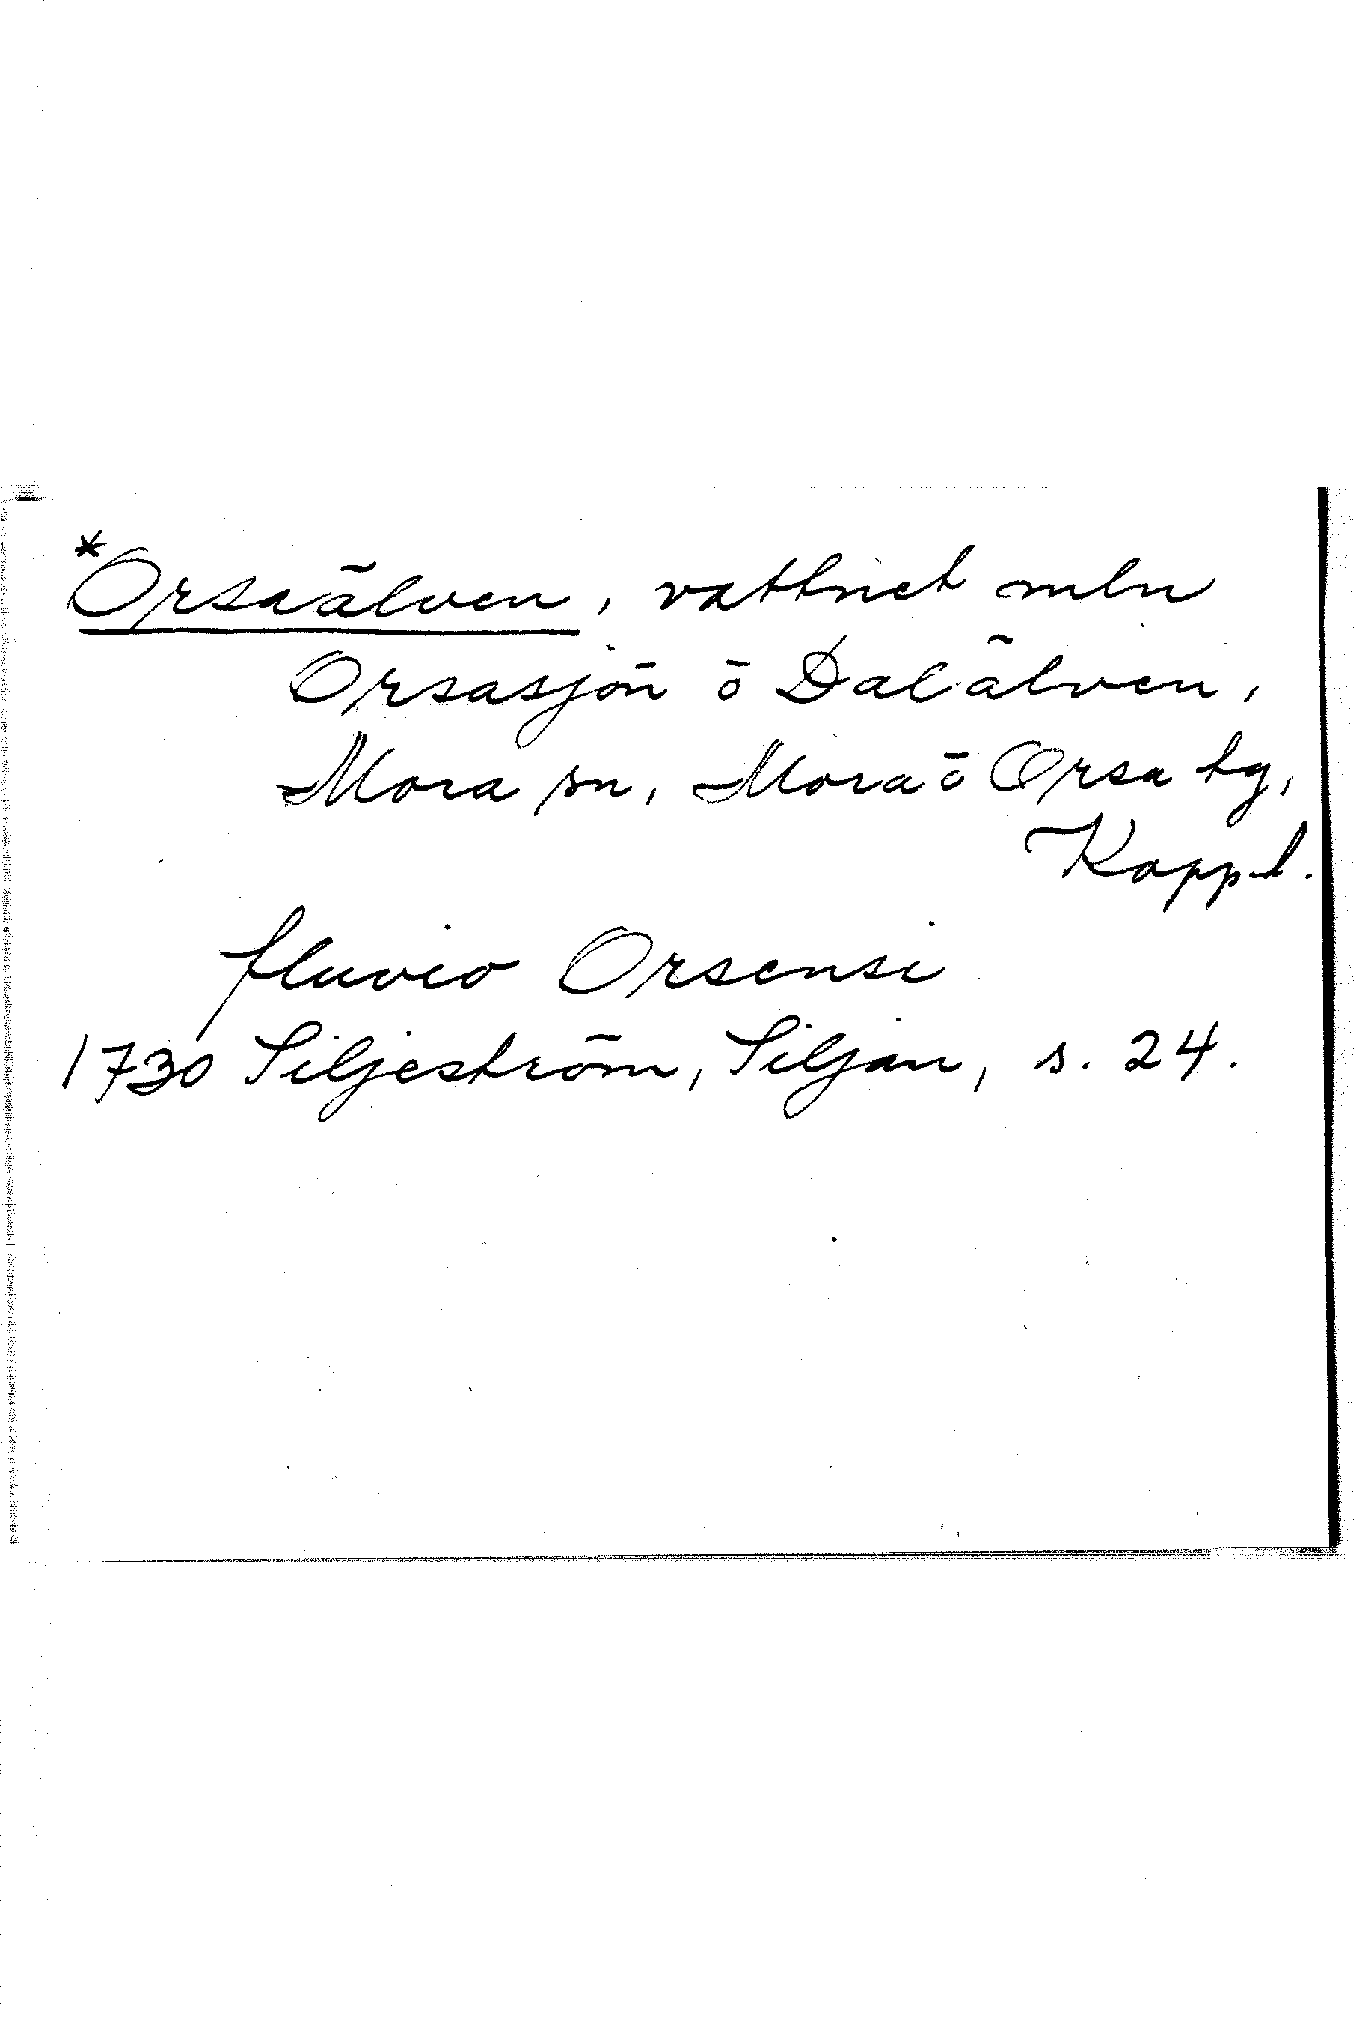 *Orsaälven, vattnet mln
Orsasjön ö Dalälven,
Mora sn, Mora ö Orsa tg,
Kopp.l.
fluvio Orsensi
1730 Siljeström, Siljan, s. 24.